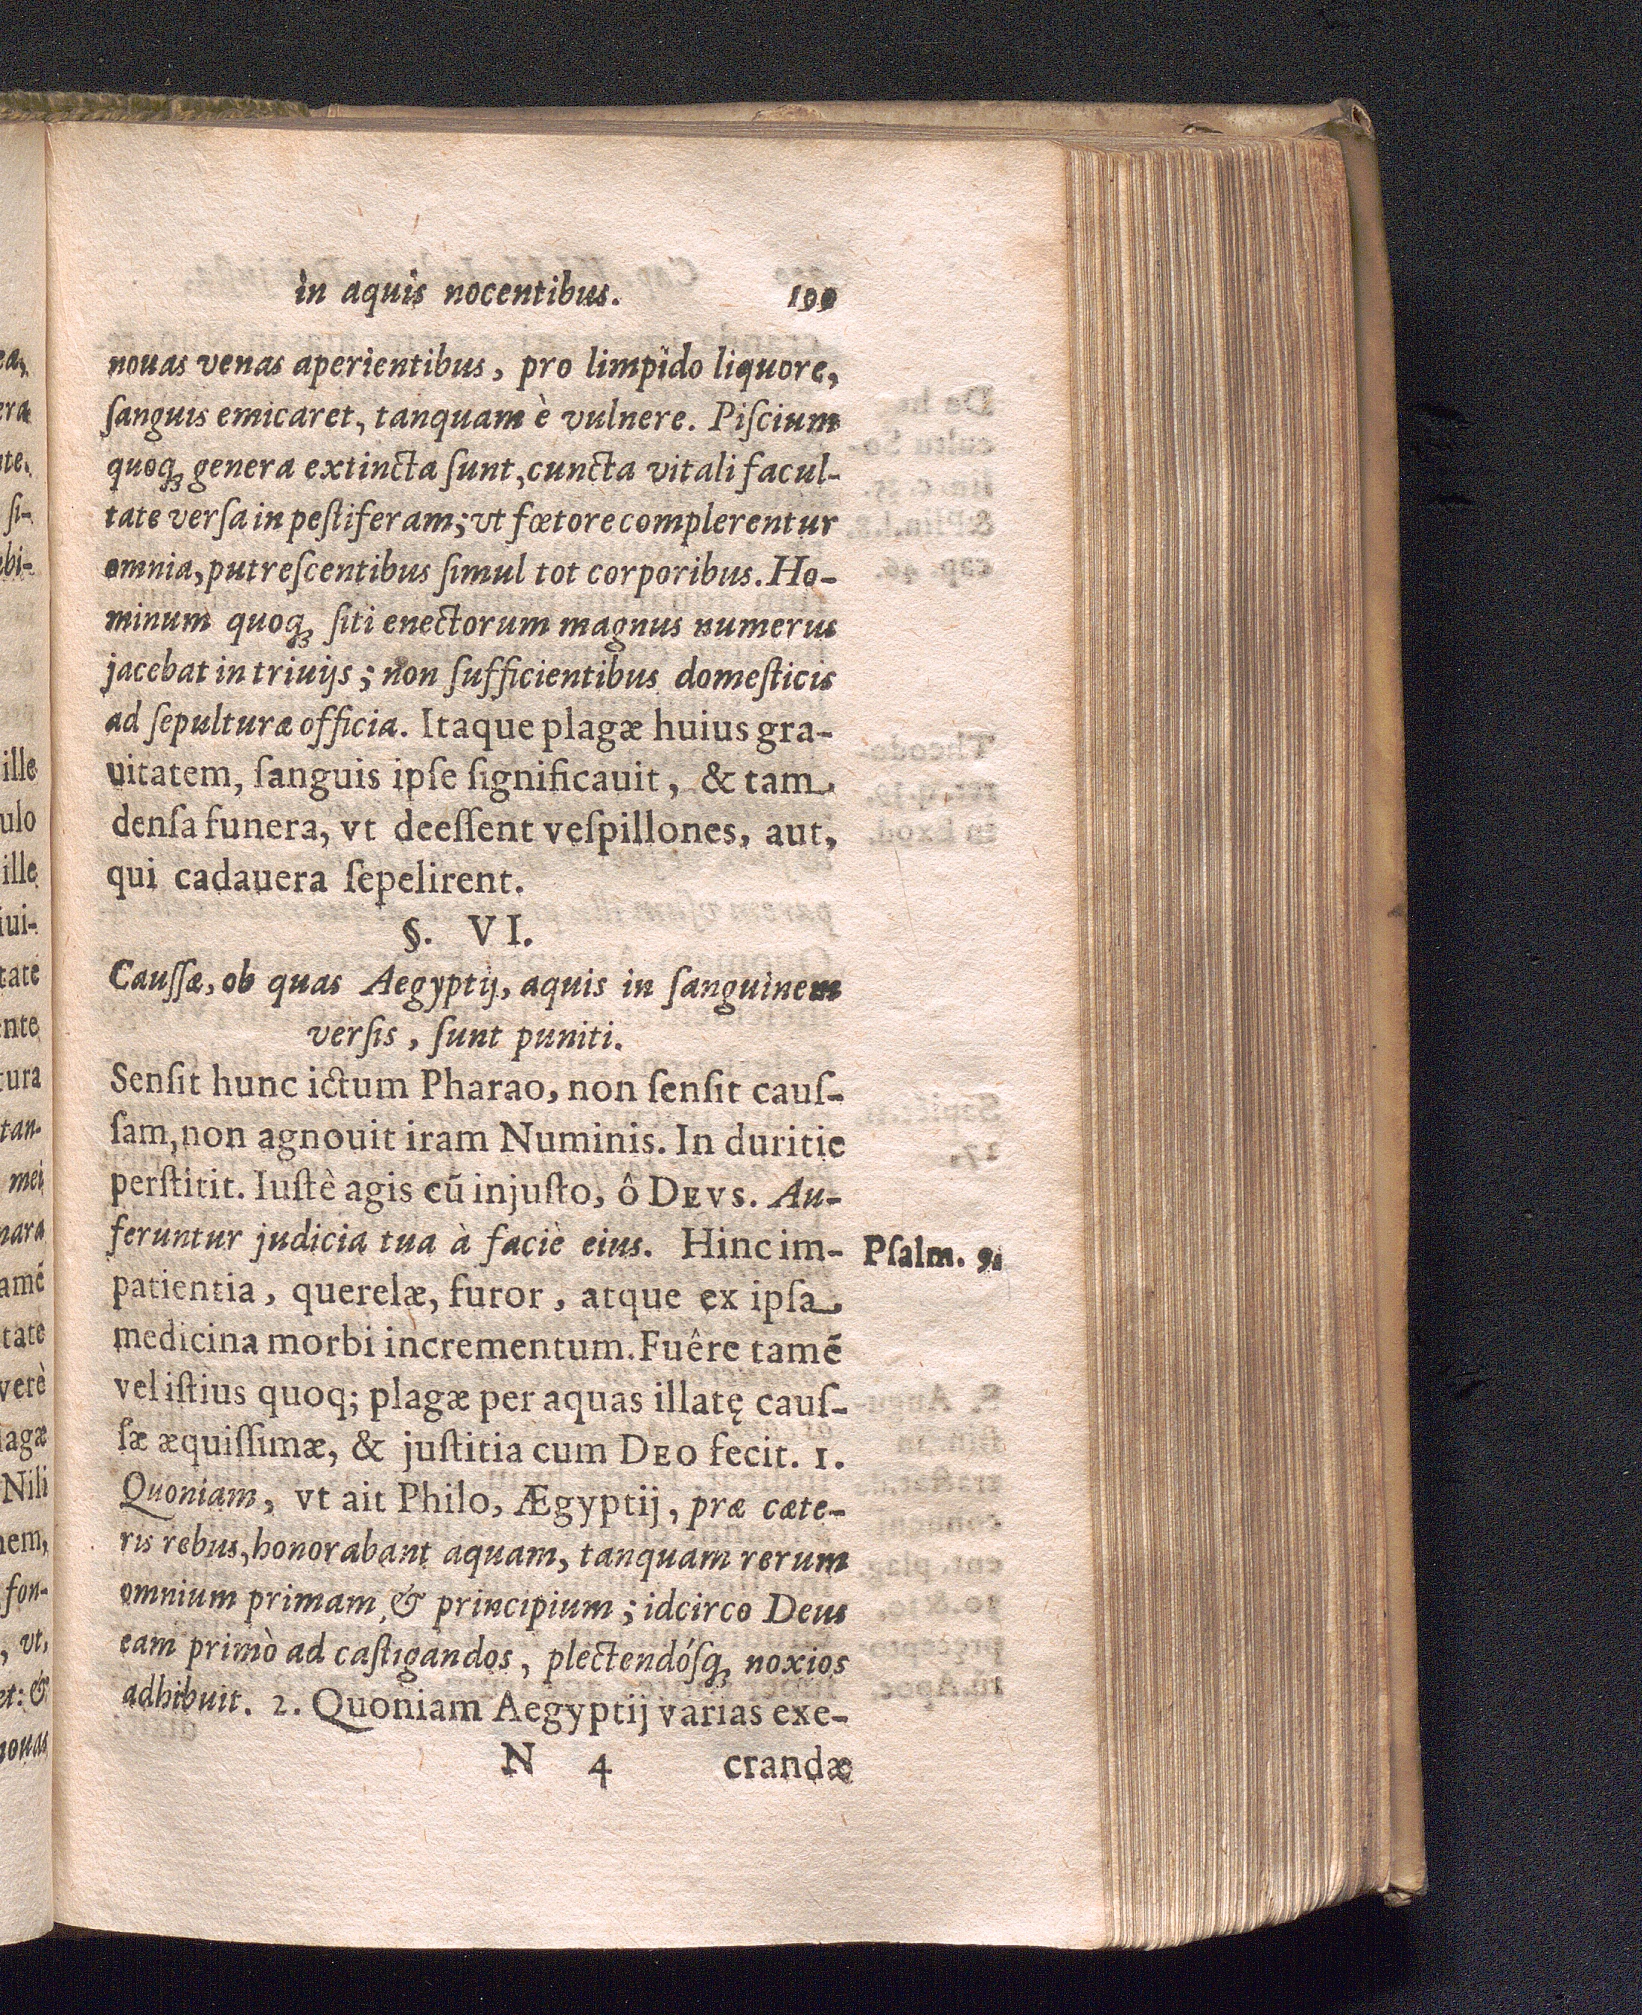 in aquis nocentibus. 199
nouas venas aperientibus, pro limpido liquore,
ſanguis emicaret, tanquam è vulnere. Piſcium
quoq́ꝫ genera extincta ſunt, cuncta vitali facul-
tate verſa in peſtiferam; vt fœtore complerentur
omnia, putreſcentibus ſimul tot corporibus. Ho-
minum quoqꝫ ſiti enectorum magnus numerus
jacebat in triuijs; non ſufficientibus domeſticis
ad ſepulturæ officia. Itaque plagæ huius gra-
uitatem, ſanguis ipſe ſignificauit, & tam
denſa funera, vt deeſſent veſpillones, aut,
qui cadauera ſepelirent.
§. VI.
Cauſſæ, ob quas Aegyptij, aquis in ſanguinem
verſis, ſunt puniti.
Senſit hunc ictum Pharao, non ſenſit cauſ-
ſam, non agnouit iram Numinis. In duritie
perſtitit. Iuſtè agis cū injuſto, ô DEVS. Au-
feruntur judicia tua à faciè eius. Hinc im-
Pſalm. 9.
patientia, querelæ, furor, atque ex ipſa
medicina morbi incrementum. Fuêre tamē
vel iſtius quoq; plagæ per aquas illatę cauſ-
ſæ æquiſſimæ, & juſtitia cum DEO fecit. 1.
Quoniam, vt ait Philo, Ægyptij, præ cæte-
ris rebus, honorabant aquam, tanquam rerum
omnium primam, & principium; idcirco Deus
eam primò ad caſtigandos, plectendóſqꝫ noxios
adhibuit. 2. Quoniam Aegyptij varias exe-
N 4 crandæ